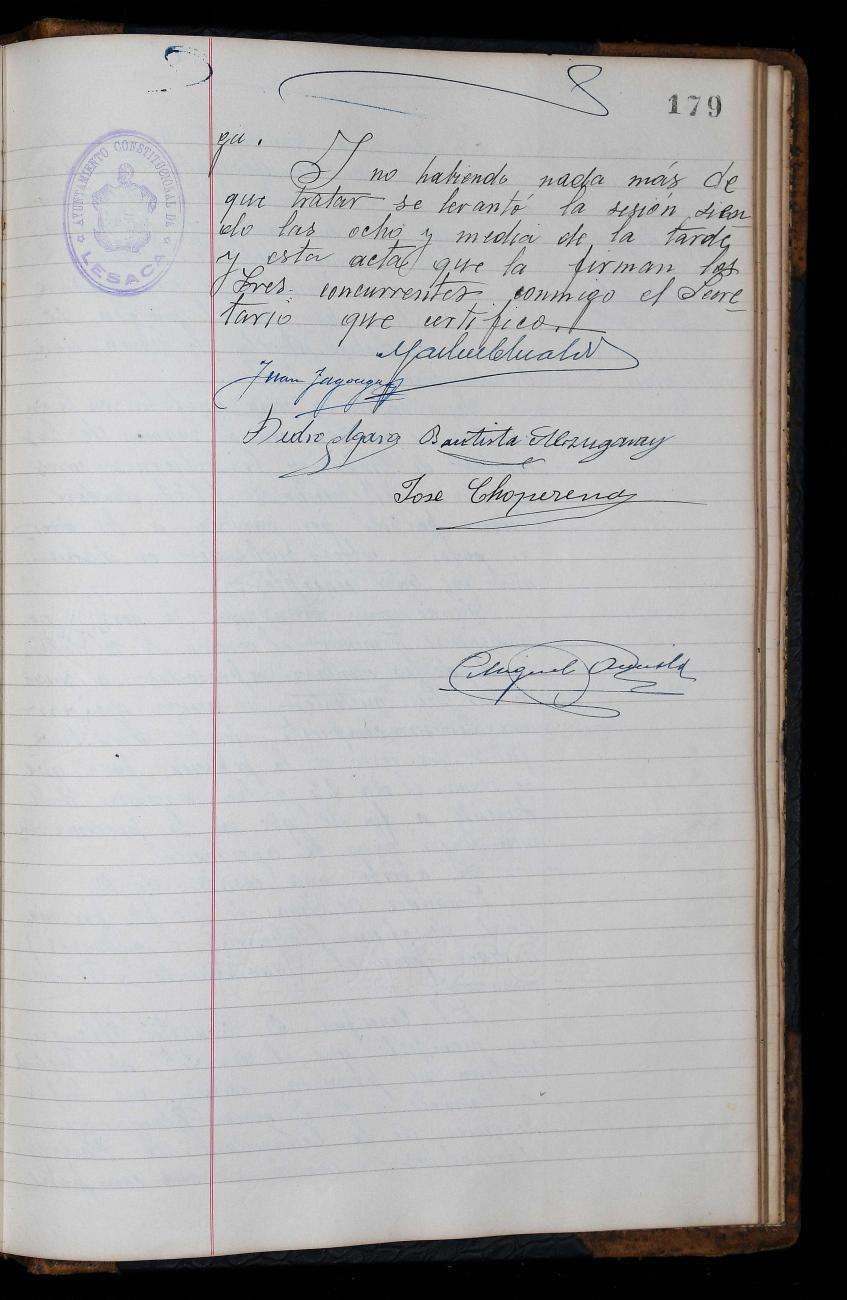 179
AYUNTAMIENTO CONSTITUCIONAL DE
LESACA
ga.
Y no habiendo nada más de
que tratar se levantó la sesión sien
do las ocho y media de la tarde
y esta acta que la firman los
Sres. concurrentes conmigo el Secre-
tario que certifico.
Juan
Pedro Bautista
José Choperena
Miguel